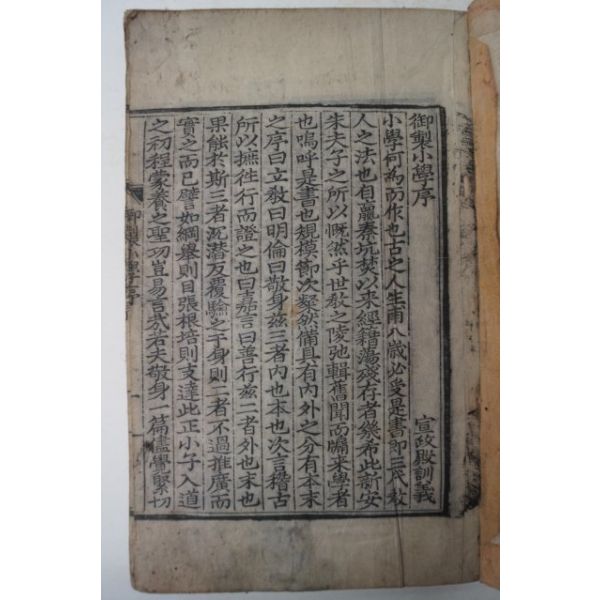 御製小學序 宣政殿訓義
小學何爲而作也古之人生甫八歲必受是書即三代敎
人之法也自嬴秦坑焚以來經籍蕩殘存者幾希此新安
朱夫子之所以慨然乎世敎之陵弛輯舊聞而牖來學者
也嗚呼是書也規模節次粲然備具有內外之分有本末
之序曰立敎曰明倫曰敬身玆三者內也本也次言稽古
所以摭往行而證之也曰嘉言曰善行玆二者外也末也
果能於斯三者沉潛反覆驗之于身則二者不過推廣而
實之而已譬如綱擧則目張根培則支達此正小子入道
之初程蒙養之聖功豈易言哉若夫敬身一篇儘覺緊切
御製小學序